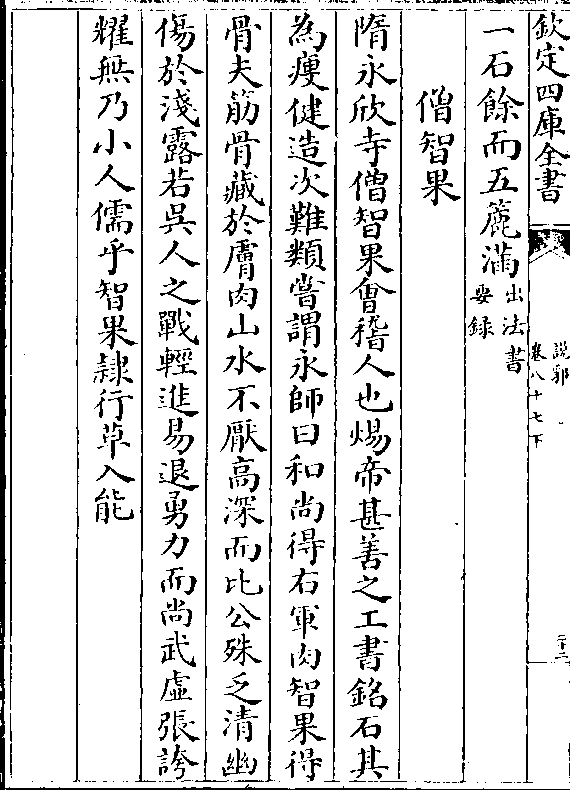 欽定四庫全書
說郛
卷八十七下
二十二
一石餘而五簏滿出法書
要録
僧智果
隋永欣寺僧智果會稽人也煬帝甚善之工書銘石其
為瘦健造次難類嘗謂永師曰和尚得右軍肉智果得
骨夫筋骨藏於膚肉山水不厭高深而比公殊乏清幽
傷於淺露若吳人之戰輕進易退勇力而尚武虛張誇
耀無乃小人儒乎智果隷行草入能